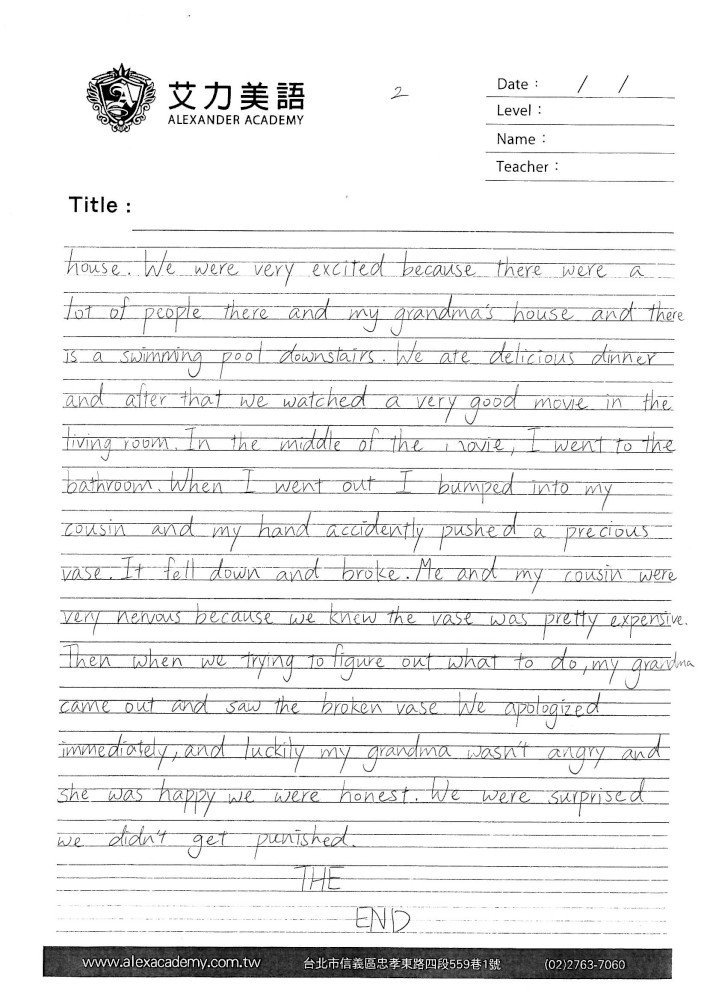 艾力美語
ALEXANDER ACADEMY
2
Date : / /
Level :
Name :
Teacher :
Title :
house. We were very excited because there were a
lot of people there and my grandma's house and there
is a swimming pool downstairs. We ate delicious dinner
and after that we watched a very good movie in the
living room. In the middle of the movie, I went to the
bathroom. When I went out I bumped into my
cousin and my hand accidently pushed a precious
vase. It fell down and broke. Me and my cousin were
very nervous because we knew the vase was pretty expensive.
Then when we trying to figure out what to do, my grandma
came out and saw the broken vase We apologized
immediately, and luckily my grandma wasn't angry and
she was happy we were honest. We were surprised
we didn't get punished.
THE
END
www.alexacademy.com.tw 台北市信義區忠孝東路四段559巷1號 (02)2763-7060